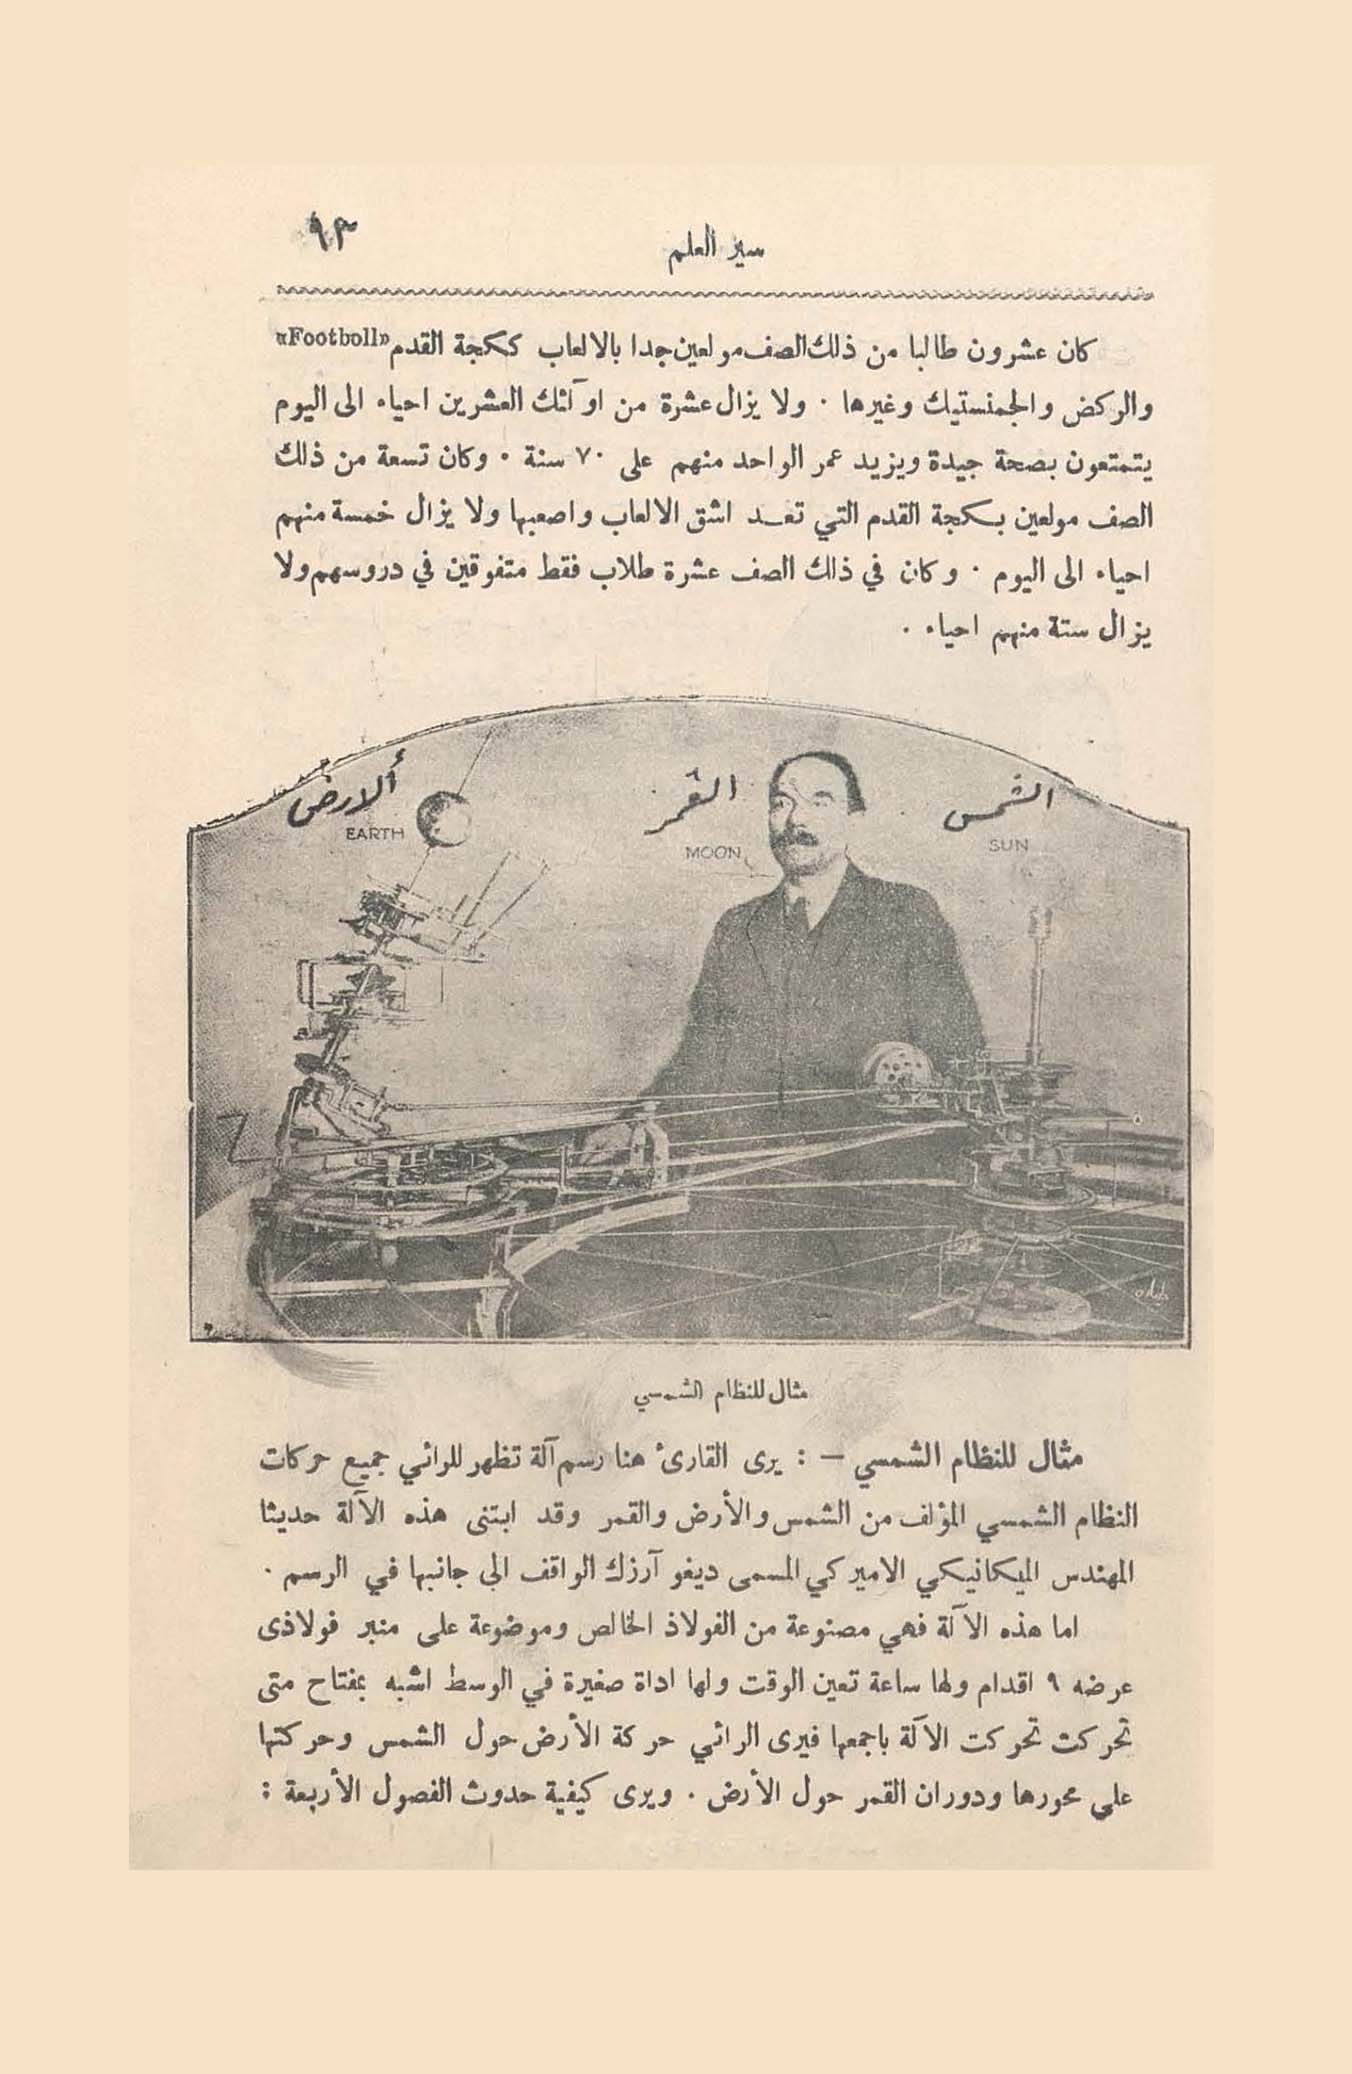 سير العلم
٩٣
كان عشرون طالبا من ذلك الصف مولعين جدا بالالعاب ككجة القدم «Footboll»
والركض والجمنستيك وغيرها . ولا يزال عشرة من اولٰئك العشرين احياء الى اليوم
يتمتعون بصحة جيدة ويزيد عمر الواحد منهم على ٧٠ سنة . وكان تسعة من ذلك
الصف مولعين بكجة القدم التي تعد اشق الالعاب واصعبها ولا يزال خمسة منهم
احياء الى اليوم . وكان في ذلك الصف عشرة طلاب فقط متفوقين في دروسهم ولا
يزال ستة منهم احياء .
الشمس
SUN
القمر
MOON
ألارض
EARTH
مثال للنظام الشمسي
مثال للنظام الشمسي – : يرى القارئ هنا رسم آلة تظهر للرائي جميع حركات
النظام الشمسي المؤلف من الشمس والأرض والقمر وقد ابتنى هذه الآلة حديثا
المهندس الميكانيكي الاميركي المسمى ديغو آرزك الواقف الى جانبها في الرسم .
اما هذه الآلة فهي مصنوعة من الفولاذ الخالص وموضوعة على منبر فولاذى
عرضه ٩ اقدام ولها ساعة تعين الوقت ولها اداة صغيرة في الوسط اشبه بمفتاح متى
تحركت تحركت الآلة باجمعها فيرى الرائي حركة الأرض حول الشمس وحركتها
على محورها ودوران القمر حول الأرض . ويرى كيفية حدوث الفصول الأربعة :